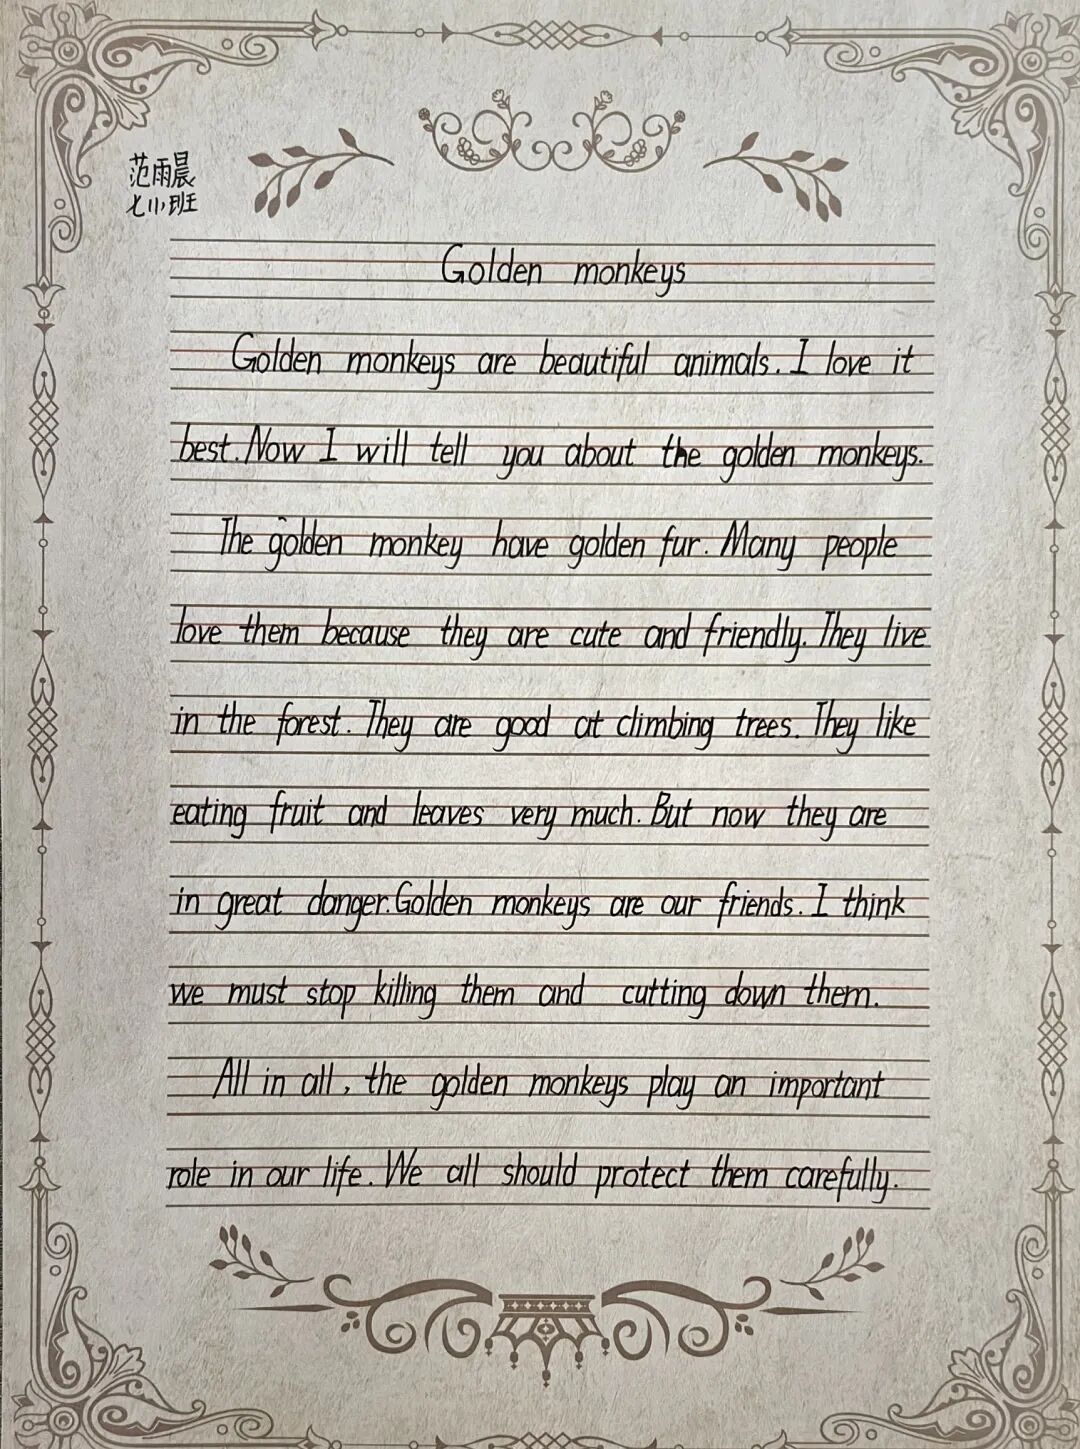 范雨晨
七11班
Golden monkeys
Golden monkeys are beautiful animals. I love it
best. Now I will tell you about the golden monkeys.
The golden monkey have golden fur. Many people
love them because they are cute and friendly. They live
in the forest. They are good at climbing trees. They like
eating fruit and leaves very much. But now they are
in great danger. Golden monkeys are our friends. I think
we must stop killing them and cutting down them.
All in all, the golden monkeys play an important
role in our life. We all should protect them carefully.